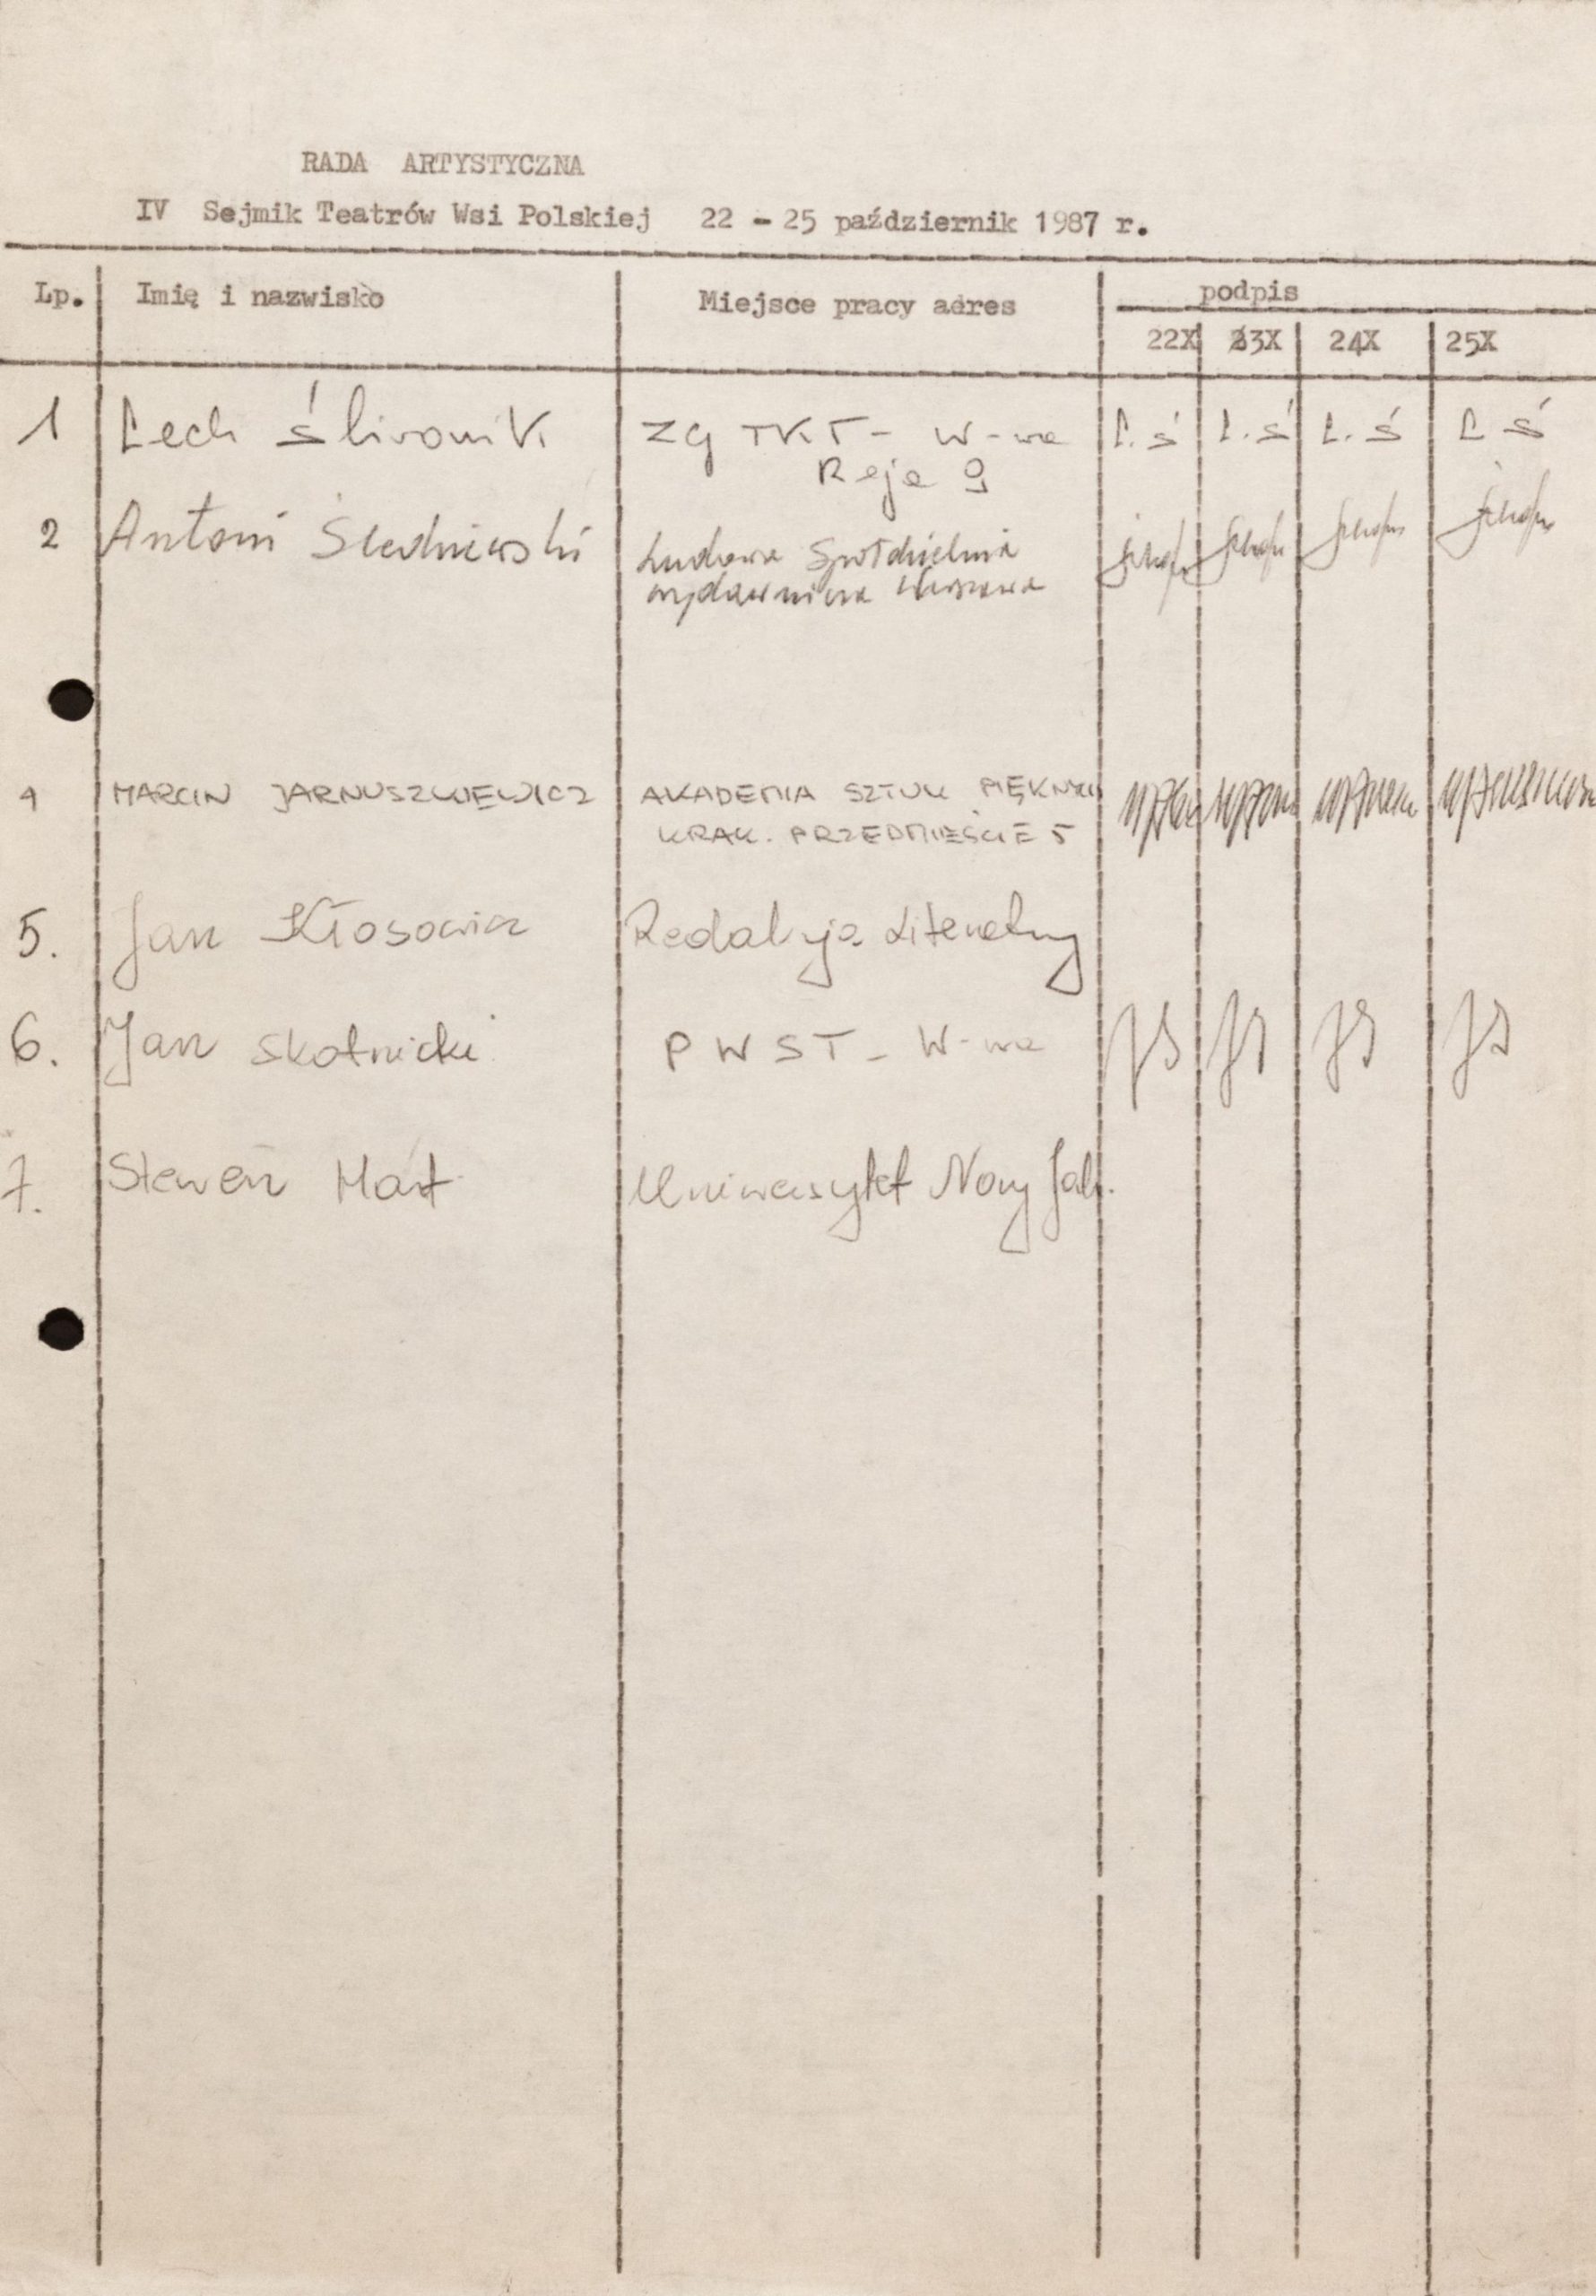 RADA ARTYSTYCZNA
IV Sejmik Teatrów Wsi Polskiej 22 - 25 październik 1987 r.
Lp. Imię i nazwisko Miejsce pracy adres podpis
22X 23X 24X 25X
1 Lech Śliwonik ZG TKT - W-wa L.Ś L.Ś L.Ś L Ś
Reja 9
2 Antoni Śledziewski Ludowa Spółdzielnia
Wydawnicza Warszawa
4 MARCIN JARNUSZKIEWICZ AKADEMIA SZTUK PIĘKNYCH
KRAK. PRZEDMIEŚCIE 5
5. Jan Kłosowicz Redakcja Literatury
6. Jan Skotnicki PWST - W-wa JS JS JS JS
7. Steven Hart Uniwersytet Nowy Jork.